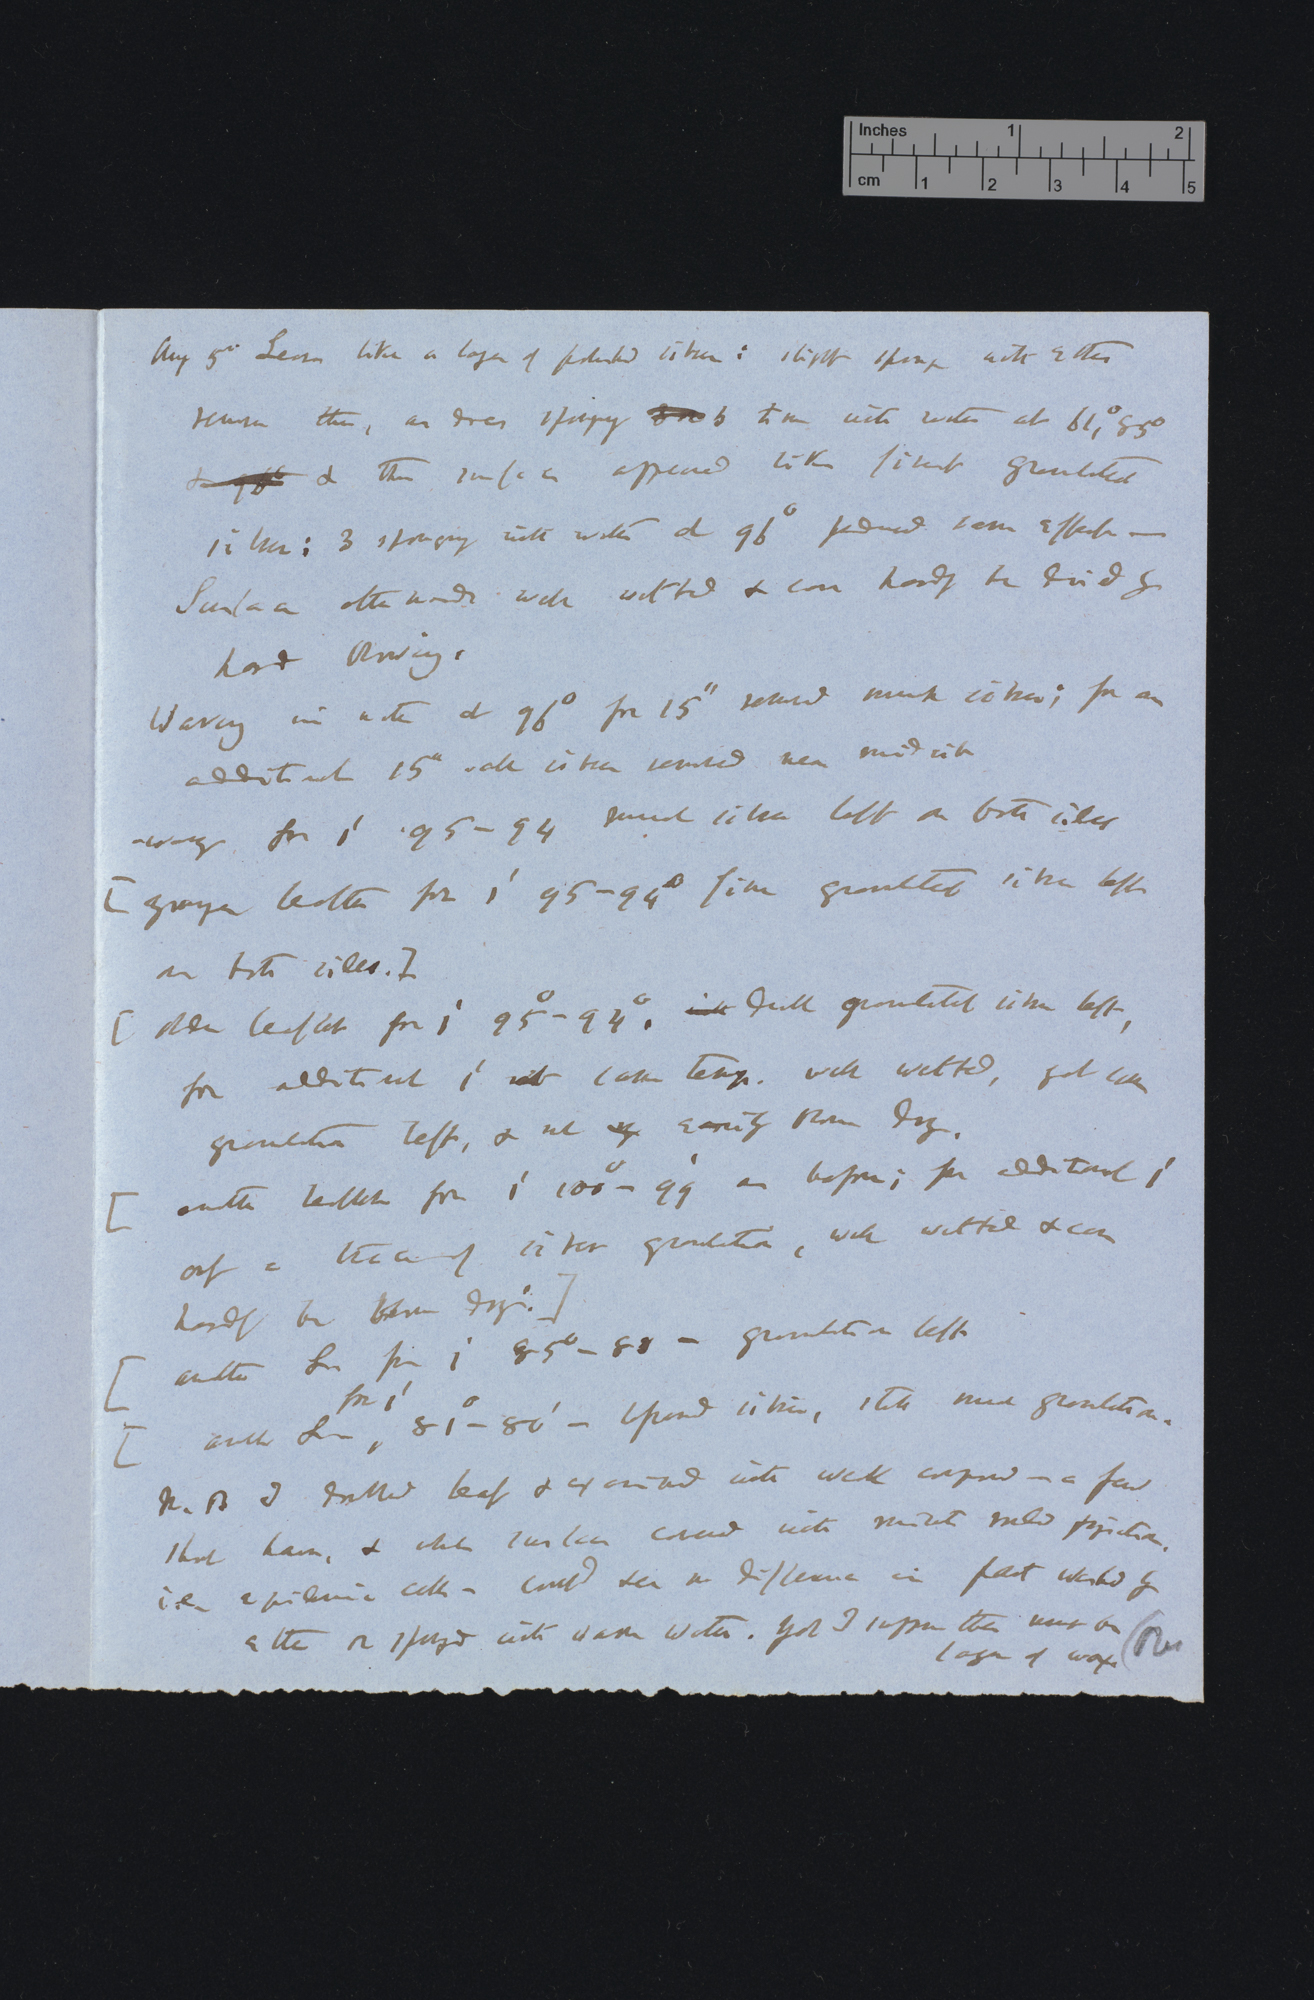 Inches 1 2
cm 1 2 3 4 5
Aug 5th Leaves like a layer of polished silver: slight sponge with ether
remove this, as does sponging 3 times with water at 81°, 85°
& then surface appeared like finest granulated
silver: 3 sponging with water at 96° produced same effect —
Surface afterwards well wetted & can hardly be dried by
hard blowing.
Waving in water at 96° for 15" removed much silver; for an
additional 15" all silver removed near midrib
waving for 1' 95–94 much silver left on both sides
[younger leaflet for 1' 95–94° fine granulated silver left
on both sides.]
[older leaflet for 1' 95°–94°. dull granulated silver left,
for additional 1' at same temp. well wetted, yet some
granulation left, & not easily blown dry.
[another leaflet for 1' 100°–99° as before; for additional 1'
only a trace of silver granulation, well wetted & can
hardly be blown dry.]
[another for 1' 85°–8 – granulation left
for 1'
[another 81°–80 – silver, still much granulation.
N.B I leaf & examined with weak compound — a few
short hairs, & whole surface covered with minute round projections,
i.e. epidermic cells – could see no difference in part washed by
ether or sponged with warm water. Yet I suppose there must be
layer of wax.